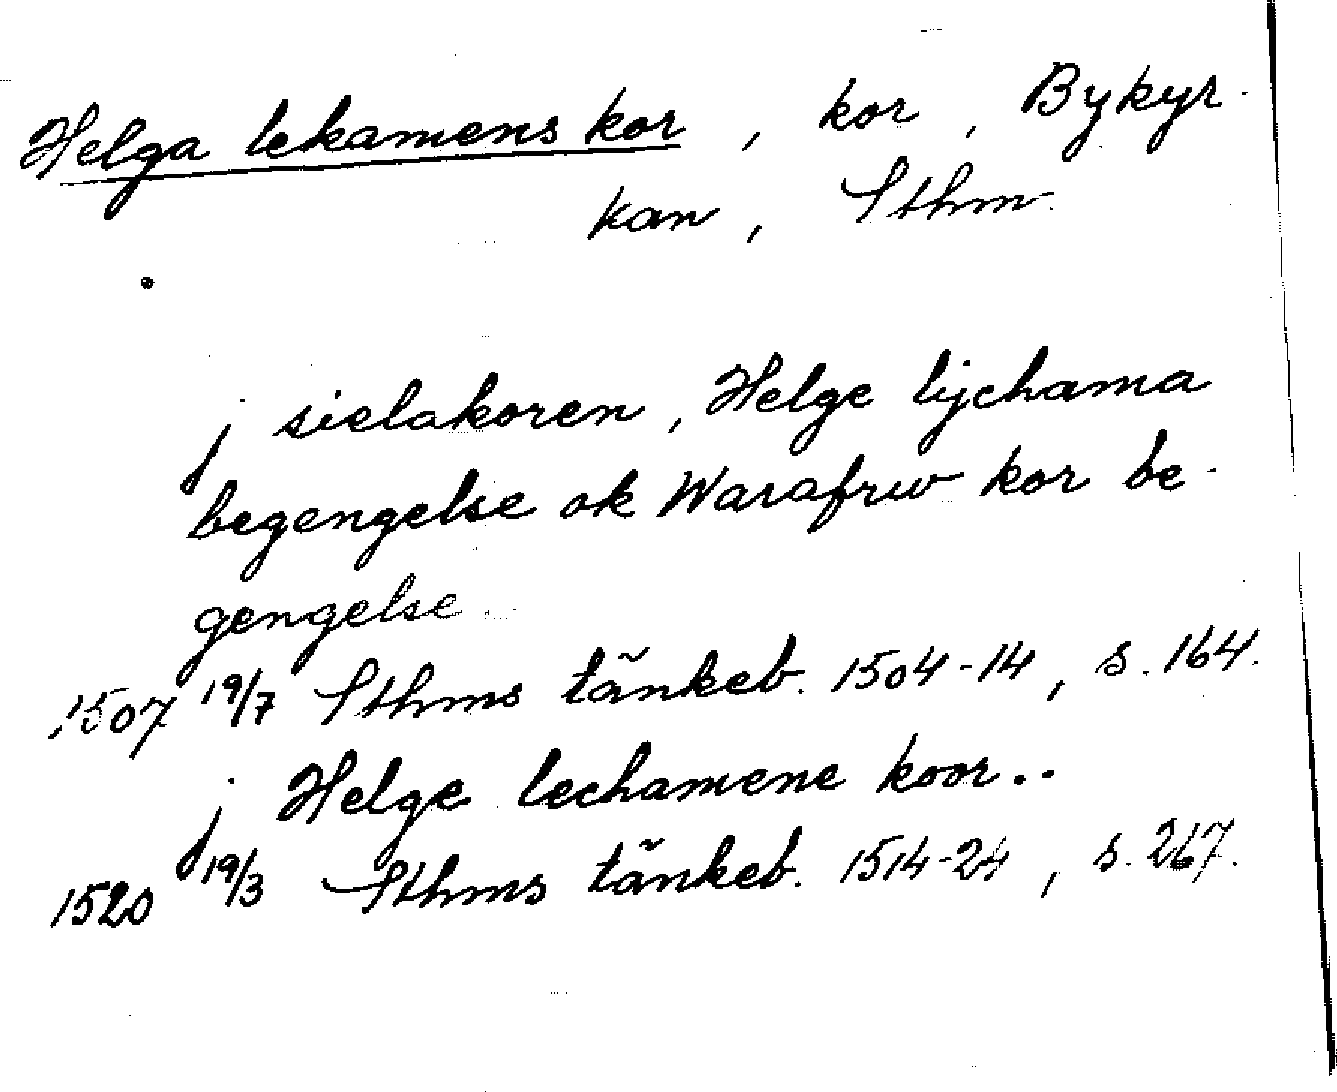 Helga lekamens kor, kor, Bykyr-
kan, Sthm.
j sielakoren, Helge lychama
begengelse ok Warafrw kor be-
gengelse
1507 19/7 Sthms tänkeb. 1504-14, s. 164.
j Helge lechamene koor..
1520 19/3 Sthms tänkeb. 1514-24, s. 267.